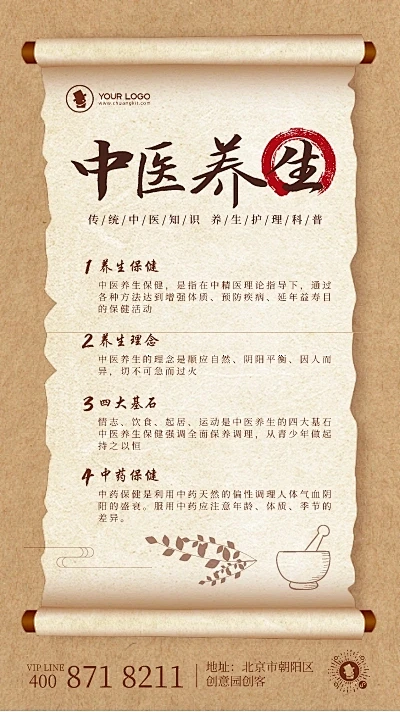 YOUR LOGO
www.chuangkit.com
中医养生
传/统/中/医/知/识 养/生/护/理/科/普
1 养生保健
中医养生保健，是指在中精医理论指导下，通过
各种方法达到增强体质、预防疾病、延年益寿目
的保健活动
2 养生理念
中医养生的理念是顺应自然、阴阳平衡、因人而
异，切不可急而过火
3 四大基石
情志、饮食、起居、运动是中医养生的四大基石
中医养生保健强调全面保养调理，从青少年做起
持之以恒
4 中药保健
中药保健是利用中药天然的偏性调理人体气血阴
阳的盛衰。服用中药应注意年龄、体质、季节的
差异。
VIP LINE
400 871 8211
地址：北京市朝阳区
创意园创客